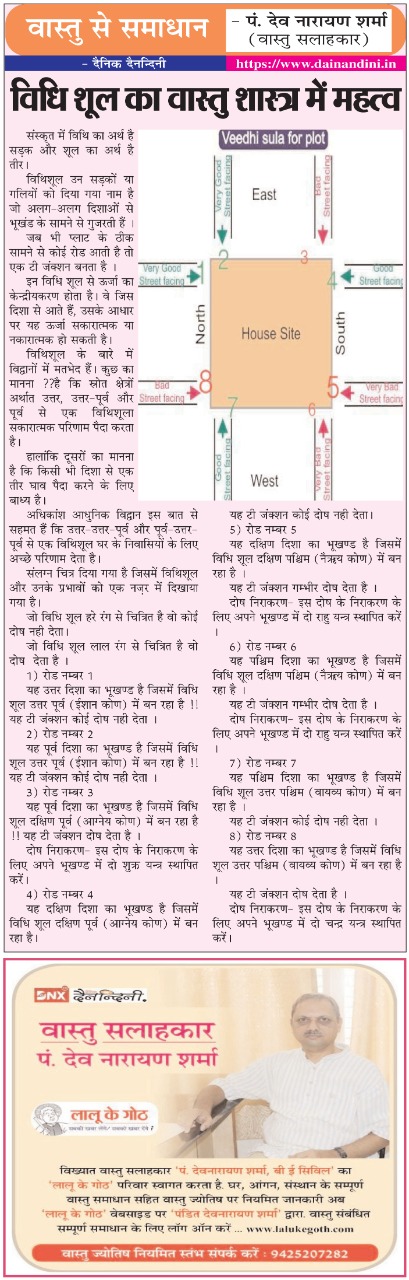 वास्तु से समाधान
- पं. देव नारायण शर्मा
(वास्तु सलाहकार)
- दैनिक दैनन्दिनी
https://www.dainandini.in
विधि शूल का वास्तु शास्त्र में महत्व
संस्कृत में विथि का अर्थ है
सड़क और शूल का अर्थ है
तीर।
विथिशूल उन सड़कों या
गलियों को दिया गया नाम है
जो अलग-अलग दिशाओं से
भूखंड के सामने से गुजरती हैं ।
जब भी प्लाट के ठीक
सामने से कोई रोड आती है तो
एक टी जंक्शन बनता है ।
इन विधि शूल से ऊर्जा का
केन्द्रीयकरण होता है। वे जिस
दिशा से आते हैं, उसके आधार
पर यह ऊर्जा सकारात्मक या
नकारात्मक हो सकती है।
विथीशूल के बारे में
विद्वानों में मतभेद हैं। कुछ का
मानना ??है कि स्रोत क्षेत्रों
अर्थात उत्तर, उत्तर-पूर्व और
पूर्व से एक विथिशूला
सकारात्मक परिणाम पैदा करता
है।
हालांकि दूसरों का मानना
है कि किसी भी दिशा से एक
तीर घाव पैदा करने के लिए
बाध्य है।
Veedhi sula for plot
Very Good
Street facing
East
Bad
Street facing
2
3
Very Good
Street facing
1
4
Good
Street facing
North
House Site
South
Bad
Street facing
8
5
Very Bad
Street facing
7
6
Good
Street facing
West
Very Bad
Street facing
अधिकांश आधुनिक विद्वान इस बात से
सहमत हैं कि उत्तर-उत्तर-पूर्व और पूर्व-उत्तर-
पूर्व से एक विथिशूल घर के निवासियों के लिए
अच्छे परिणाम देता है।
संलग्न चित्र दिया गया है जिसमें विथिशूल
और उनके प्रभावों को एक नज़र में दिखाया
गया है।
जो विधि शूल हरे रंग से चित्रित है वो कोई
दोष नही देता।
जो विधि शूल लाल रंग से चित्रित है वो
दोष देता है ।
1) रोड नम्बर 1
यह उत्तर दिशा का भूखण्ड है जिसमें विधि
शूल उत्तर पूर्व (ईशान कोण) में बन रहा है !!
यह टी जंक्शन कोई दोष नही देता ।
2) रोड नम्बर 2
यह पूर्व दिशा का भूखण्ड है जिसमें विधि
शूल उत्तर पूर्व (ईशान कोण) में बन रहा है !!
यह टी जंक्शन कोई दोष नही देता ।
3) रोड नम्बर 3
यह पूर्व दिशा का भूखण्ड है जिसमें विधि
शूल दक्षिण पूर्व (आग्नेय कोण) में बन रहा है
!! यह टी जंक्शन दोष देता है ।
दोष निराकरण- इस दोष के निराकरण के
लिए अपने भूखण्ड में दो शुक्र यन्त्र स्थापित
करें।
4) रोड नम्बर 4
यह दक्षिण दिशा का भूखण्ड है जिसमें
विधि शूल दक्षिण पूर्व (आग्नेय कोण) में बन
रहा है।
यह टी जंक्शन कोई दोष नही देता।
5) रोड नम्बर 5
यह दक्षिण दिशा का भूखण्ड है जिसमें
विधि शूल दक्षिण पश्चिम (नैऋत्य कोण) में बन
रहा है ।
यह टी जंक्शन गम्भीर दोष देता है ।
दोष निराकरण- इस दोष के निराकरण के
लिए अपने भूखण्ड में दो राहु यन्त्र स्थापित करें
।
6) रोड नम्बर 6
यह पश्चिम दिशा का भूखण्ड है जिसमें
विधि शूल दक्षिण पश्चिम (नैऋत्य कोण) में बन
रहा है ।
यह टी जंक्शन गम्भीर दोष देता है ।
दोष निराकरण- इस दोष के निराकरण के
लिए अपने भूखण्ड में दो राहु यन्त्र स्थापित करें
।
7) रोड नम्बर 7
यह पश्चिम दिशा का भूखण्ड है जिसमें
विधि शूल उत्तर पश्चिम (वायव्य कोण) में बन
रहा है ।
यह टी जंक्शन कोई दोष नही देता ।
8) रोड नम्बर 8
यह उत्तर दिशा का भूखण्ड है जिसमें विधि
शूल उत्तर पश्चिम (वायव्य कोण) में बन रहा है
।
यह टी जंक्शन दोष देता है ।
दोष निराकरण- इस दोष के निराकरण के
लिए अपने भूखण्ड में दो चन्द्र यन्त्र स्थापित
करें।
DNX दैनन्दिनी.
वास्तु सलाहकार
पं. देव नारायण शर्मा
लालू के गोठ
विख्यात वास्तु सलाहकार 'पं. देवनारायण शर्मा, बी ई सिविल' का
'लालू के गोठ' परिवार स्वागत करता है. घर, आंगन, संस्थान के सम्पूर्ण
वास्तु समाधान सहित वास्तु ज्योतिष पर नियमित जानकारी अब
'लालू के गोठ' वेबसाइड पर 'पंडित देवनारायण शर्मा' द्वारा. वास्तु संबंधित
सम्पूर्ण समाधान के लिए लॉग ऑन करें ... www.lalukegoth.com
वास्तु ज्योतिष नियमित स्तंभ संपर्क करें : 9425207282